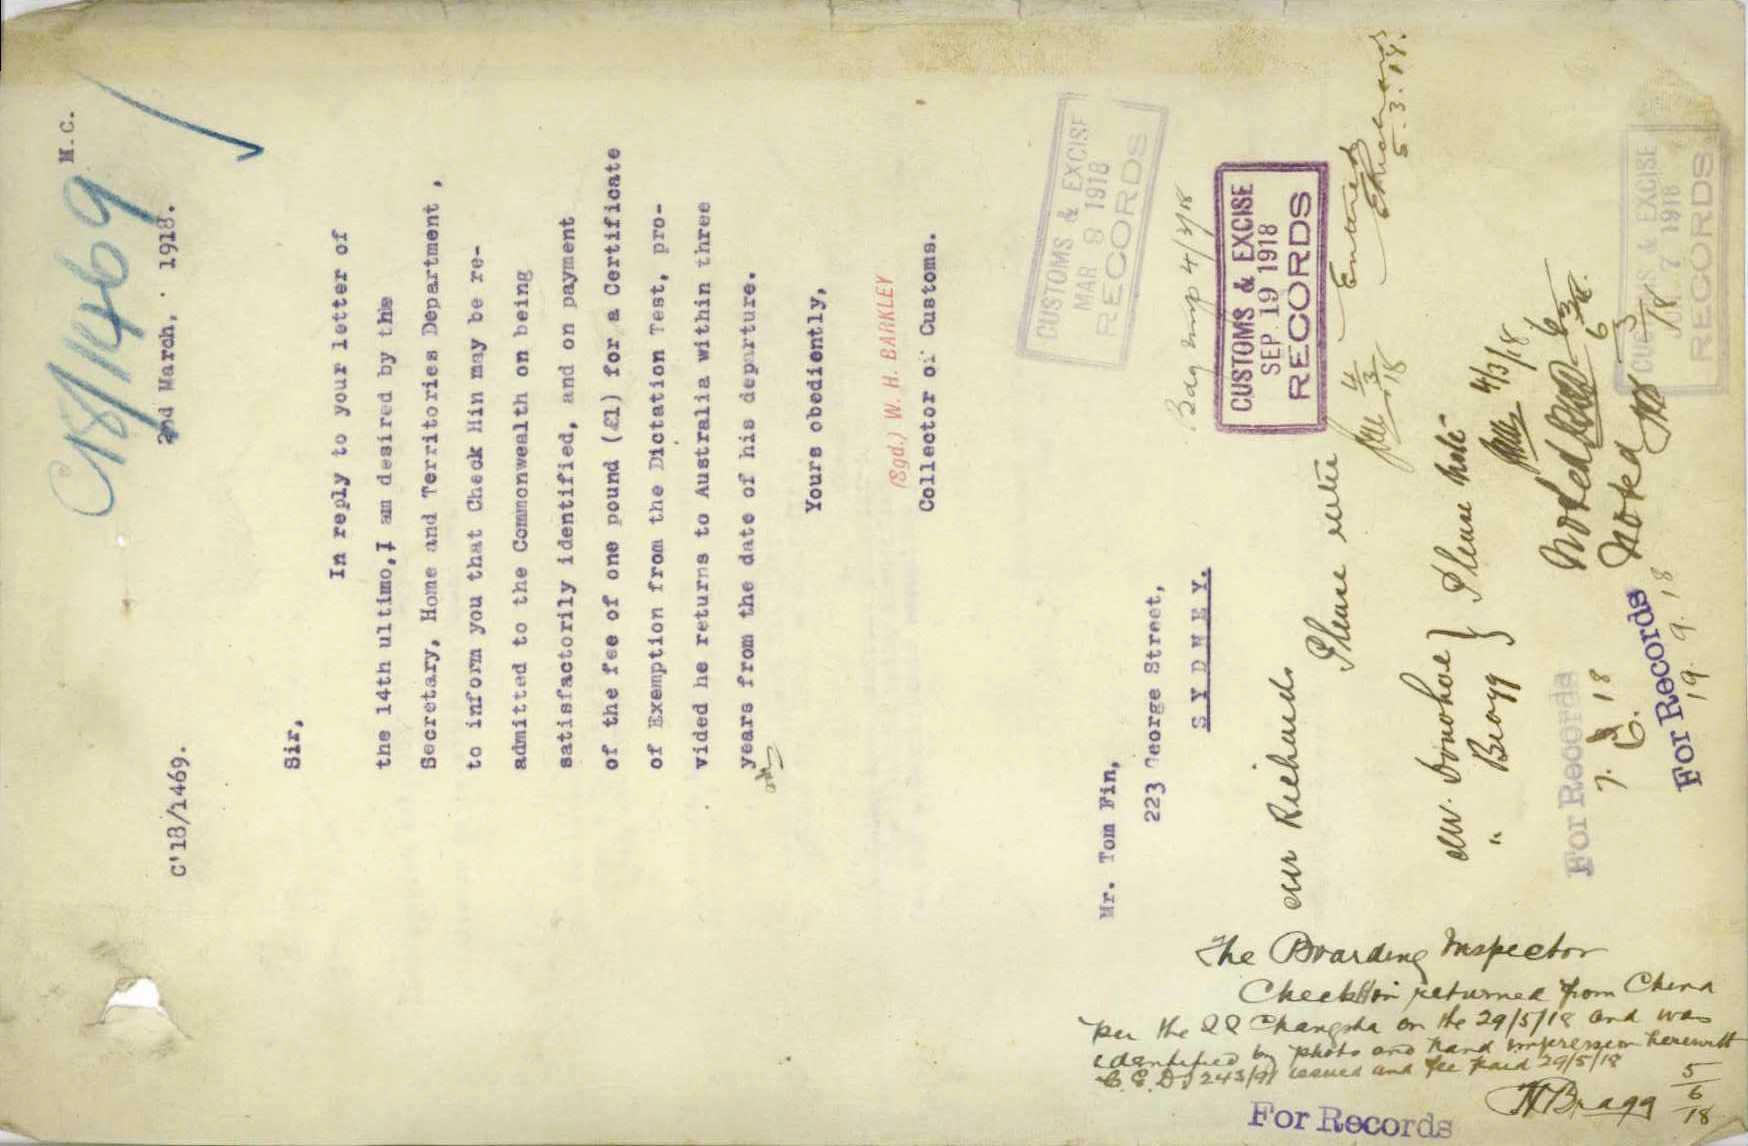 C18/1469
M.C.
C'18/1469.
2nd March, . 1918.
Sir,
In reply to your letter of
the 14th ultimo, I am desired by the
Secretary, Home and Territories Department ,
to inform you that Check Hin may be re-
admitted to the Commonwealth on being
satisfactorily identified, and on payment
of the fee of one pound (£1) for a Certificate
of Exemption from the Dictation Test, pro-
vided he returns to Australia within three
years from the date of his departure.
Yours obediently,
(Sgd.) W. H. BARKLEY
Collector of Customs.
CUSTOMS & EXCISE
MAR 8 1918
RECORDS
Mr. Tom Fin,
223 George Street,
SYDNEY.
4/3/18
CUSTOMS & EXCISE
SEP 19 1918
RECORDS
Mr Richards
Please note
4/3/18
Entered
5.3.18.
Mr. Donohoe
" Bragg } Please note
4/3/18
Noted
6/3/18.
Noted
6/3/18
For Records
7. 6. 18
CUSTOMS & EXCISE
7 1918
RECORDS
For Records
19. 9. 18
The Boarding Inspector
Check Hin returned from China
per the SS Changsha on the 29/5/18 and was
identified by photo and hand impression herewith
C.E.D.T 243/91 issued and fee paid 29/5/18
H Bragg 5/6/18
For Records